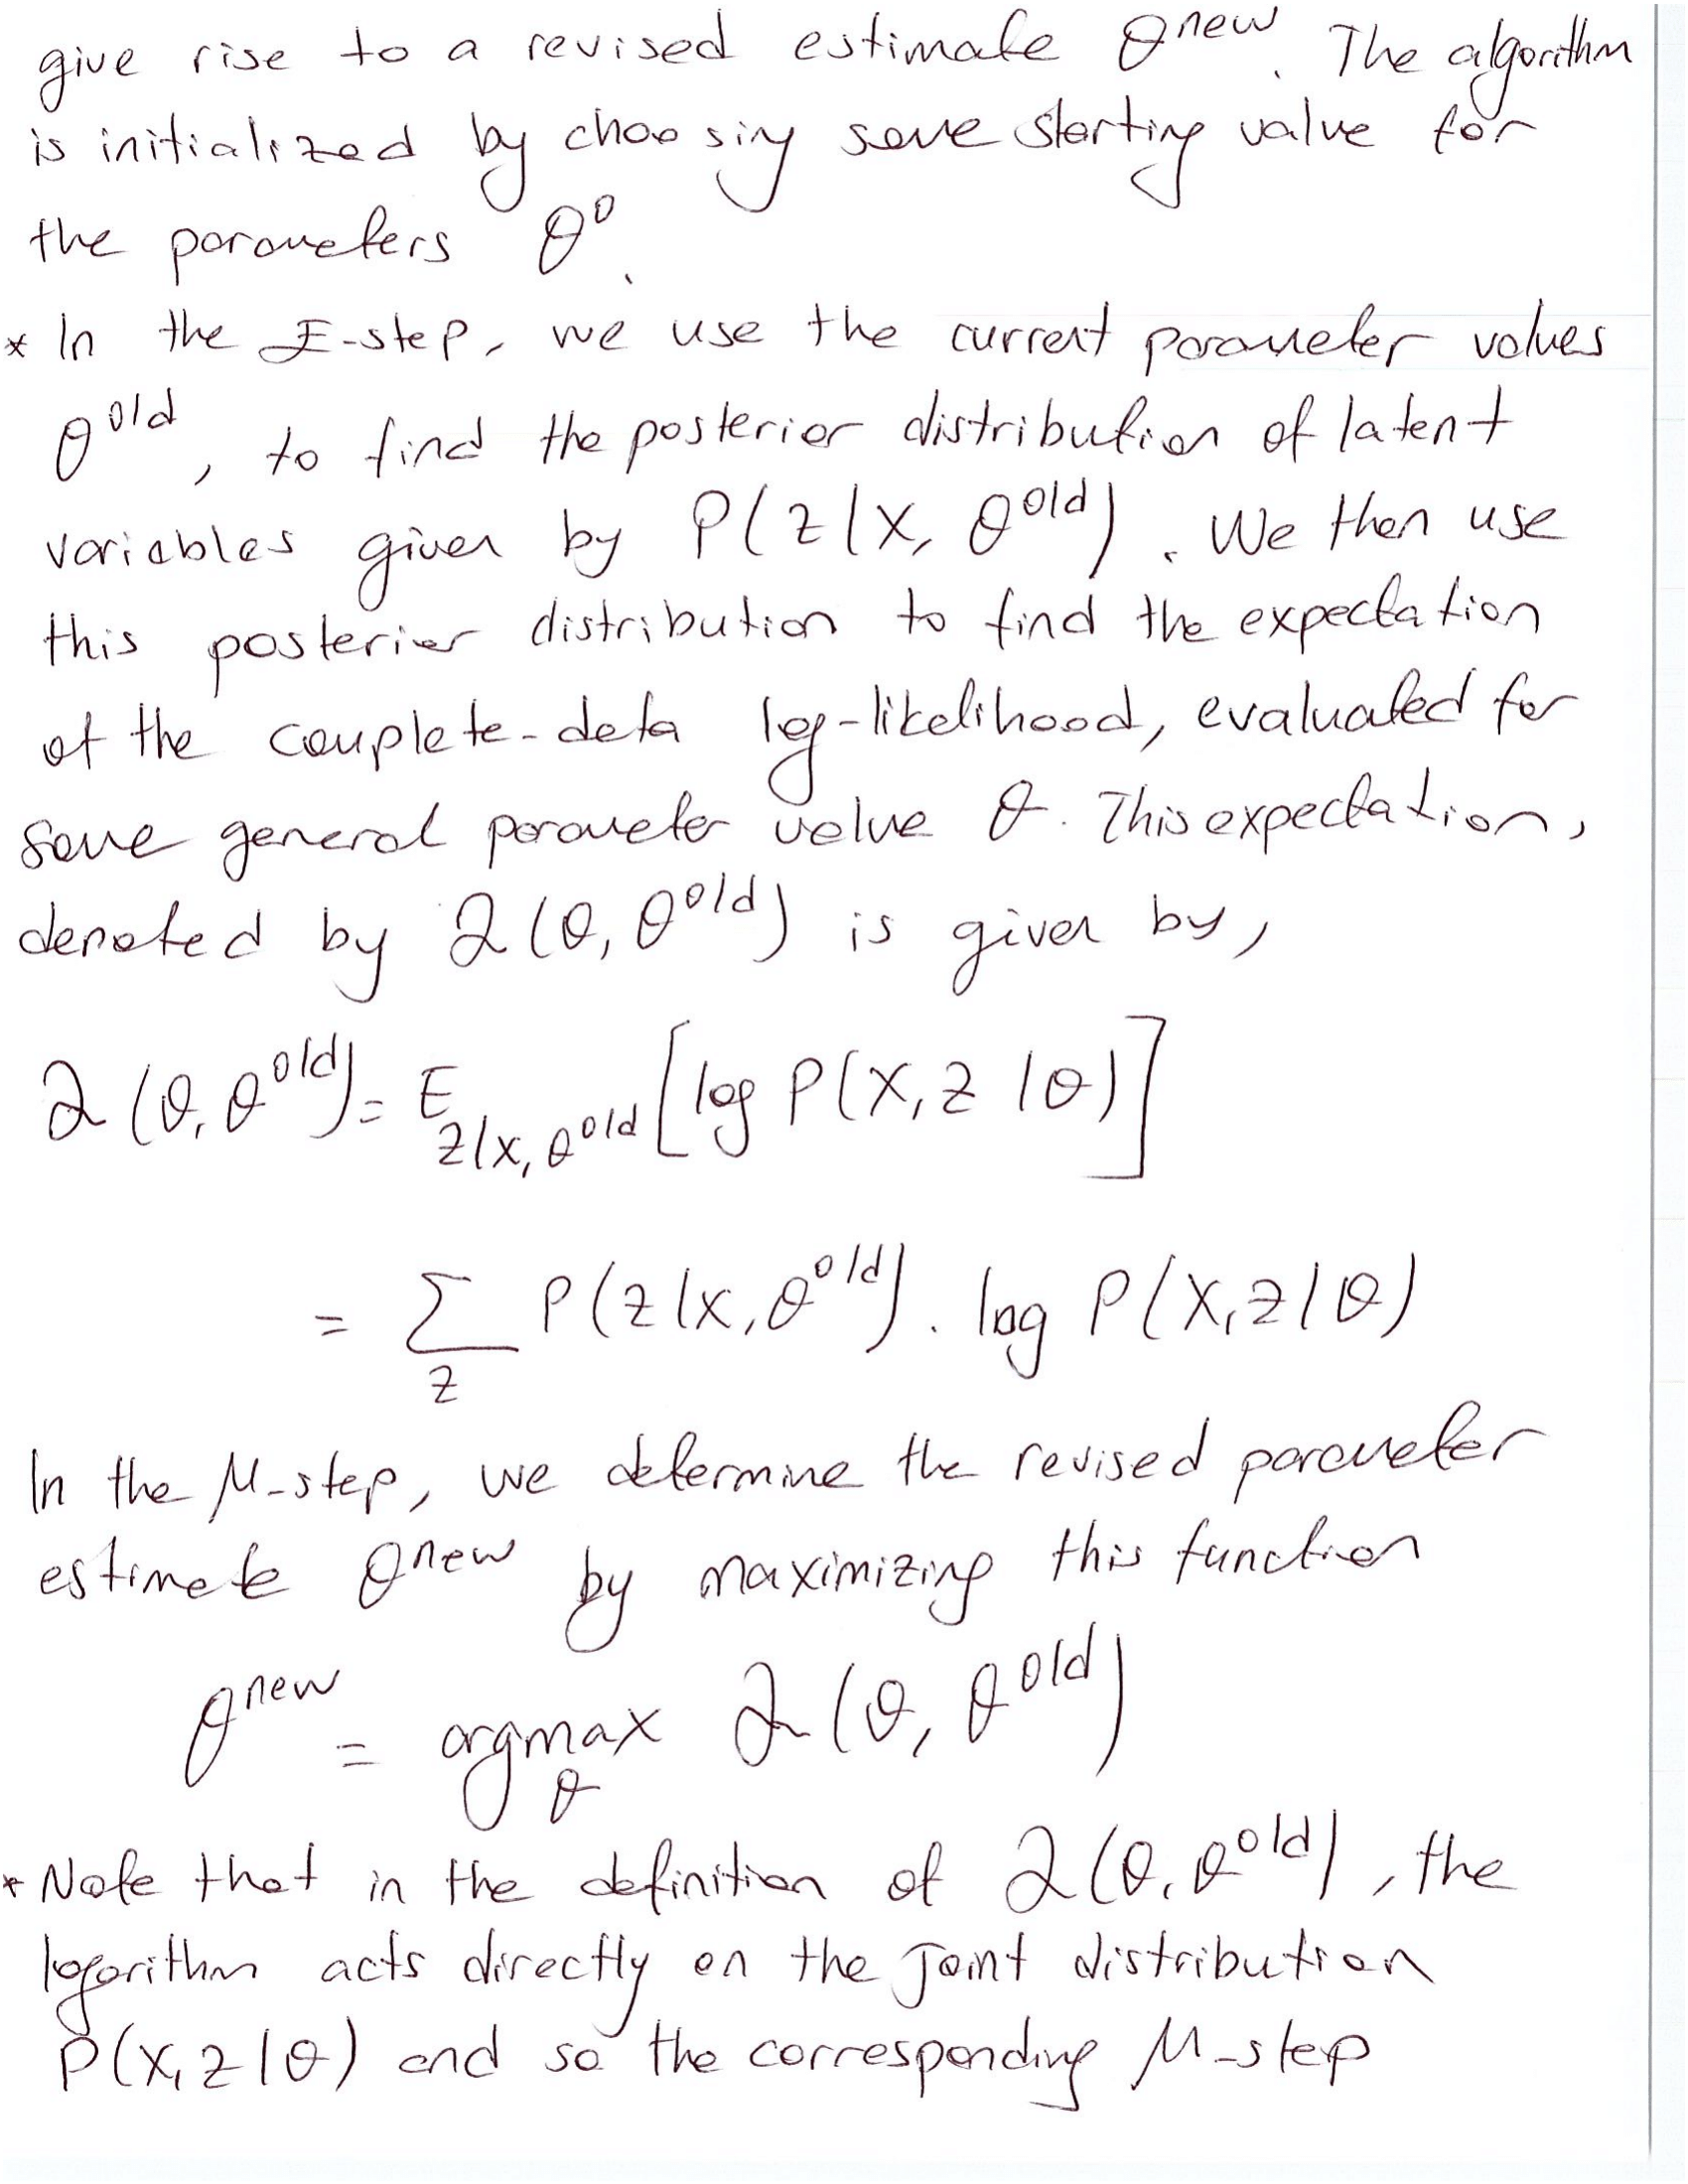 give rise to a revised estimate θ^new. The algorithm
is initialized by choosing some starting value for
the parameters θ^0.
* In the E-step, we use the current parameter values
θ^old, to find the posterior distribution of latent
variables given by P(z|X, θ^old). We then use
this posterior distribution to find the expectation
of the complete-data log-likelihood, evaluated for
some general parameter value θ. This expectation,
denoted by Q(θ, θ^old) is given by,
Q(θ, θ^old) = E_{z|x, θ^old} [log P(X, z|θ)]
= Σ_z P(z|x, θ^old) . log P(X, z|θ)
In the M-step, we determine the revised parameter
estimate θ^new by maximizing this function
θ^new = argmax_θ Q(θ, θ^old)
* Note that in the definition of Q(θ, θ^old), the
logarithm acts directly on the joint distribution
P(X, z|θ) and so the corresponding M-step